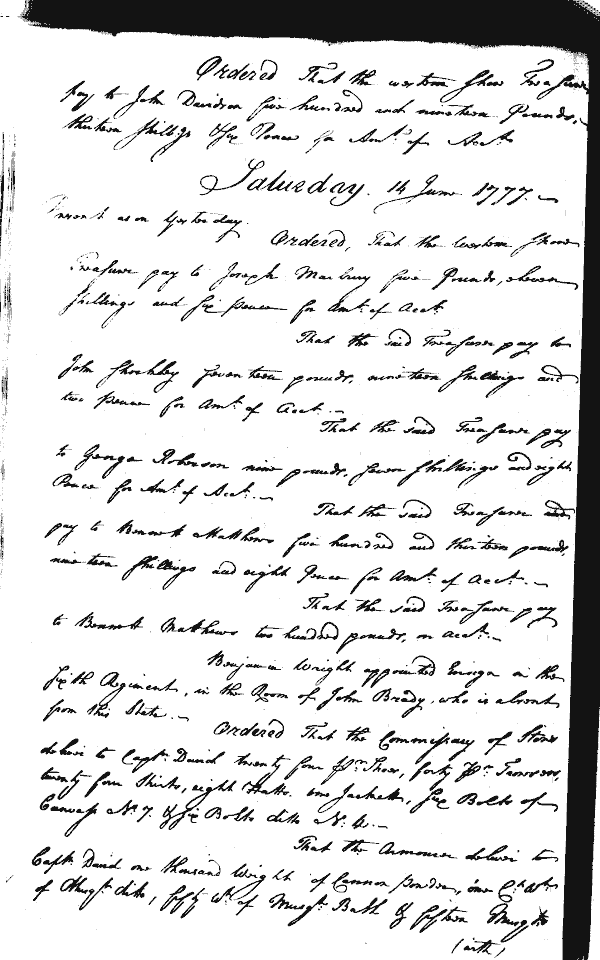 Ordered That the western Shore Treasurer
pay to John Davidson five hundred and nineteen Pounds,
thirteen shillings & six Pence for Amt. of Acct.
Saturday. 14 June 1777.
Present as on Yesterday.
Ordered, That the western Shore
Treasurer pay to Joseph Marbury five Pounds, eleven
shillings and six pence for Amt. of Acct.
That the said Treasurer pay to
John Shockley seventeen pounds, nineteen shillings and
two Pence for Amt. of Acct.
That the said Treasurer pay
to George Robinson nine pounds, seven shillings and eight
Pence for Amt. of Acct.
That the said Treasurer
pay to Bennett Matthews five hundred and thirteen pounds,
nineteen shillings and eight Pence for Amt. of Acct.
That the said Treasurer pay
to Bennett Matthews two hundred pounds, on Acct.
Benjamin Wright appointed Ensign in the
sixth Regiment, in the Room of John Brady, who is absent
from this State.
Ordered That the Commissary of Stores
deliver to Capt. David twenty four pr. Shoes, forty pr. Trowsers,
twenty four Shirts, eight Hatts one Jackett, six Bolts of
Canvass No. 7. & six Bolts ditto No. 4.
That the Armourer deliver to
Capt. David one thousand Weight of Cannon Powder, one Ct. Wt.
of Musqt. ditto, fifty Wt. of Musqt. Ball & fifteen Musqts
(with)